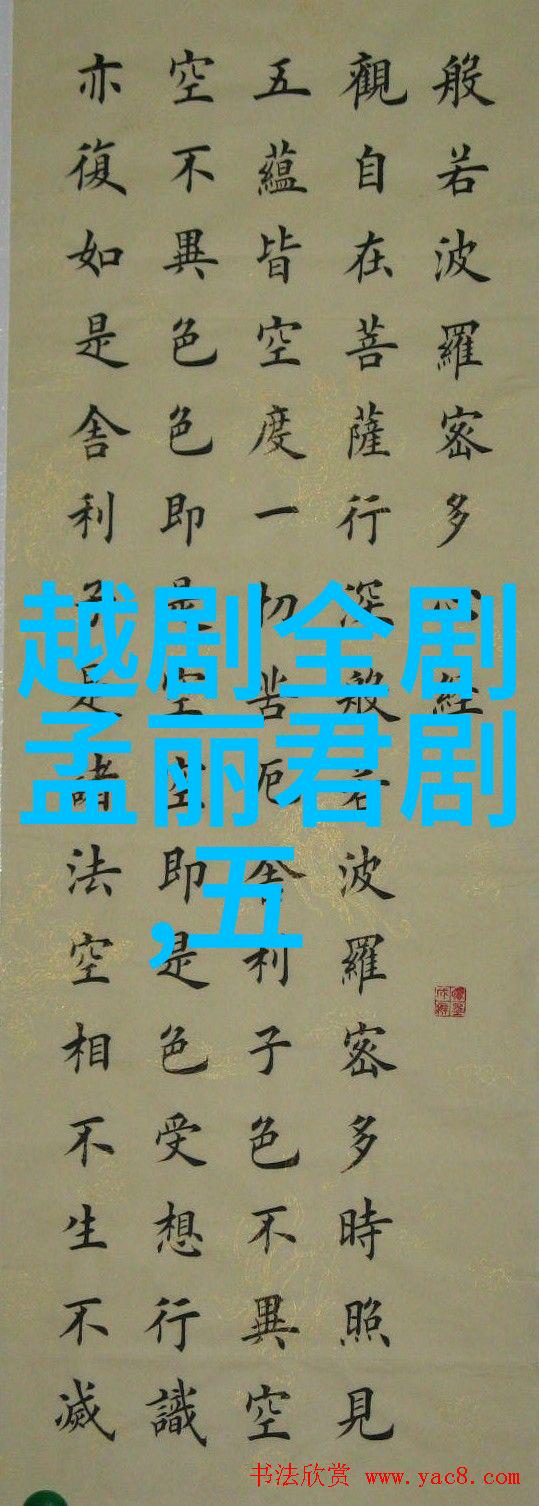 般若波羅密多心經
觀自在菩薩行深般若波羅密多時照見
五蘊皆空度一切苦厄舍利子色不異空
空不異色色即是空空即是色受想行識
亦復如是舍利子是諸法空相不生不滅
越剧全剧
孟丽君剧
,五
书法欣赏 www.yac8.com